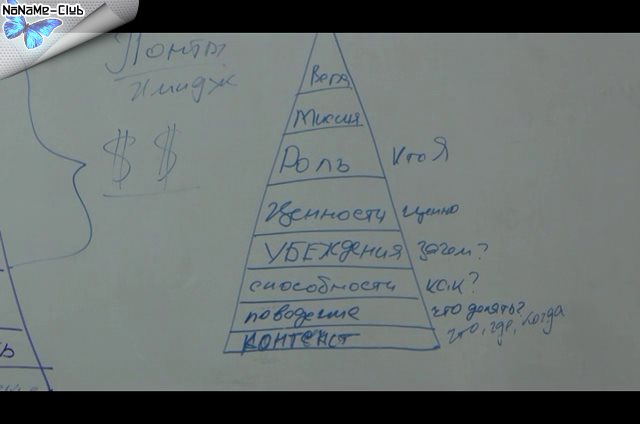 NoName-Club
Понты
имидж
$ $
Вера
Миссия
Роль
Кто Я
Ценности
ценно
УБЕЖДЕНИЯ
зачем?
способности
как?
поведение
что делать?
контекст
что, где, когда
Ь